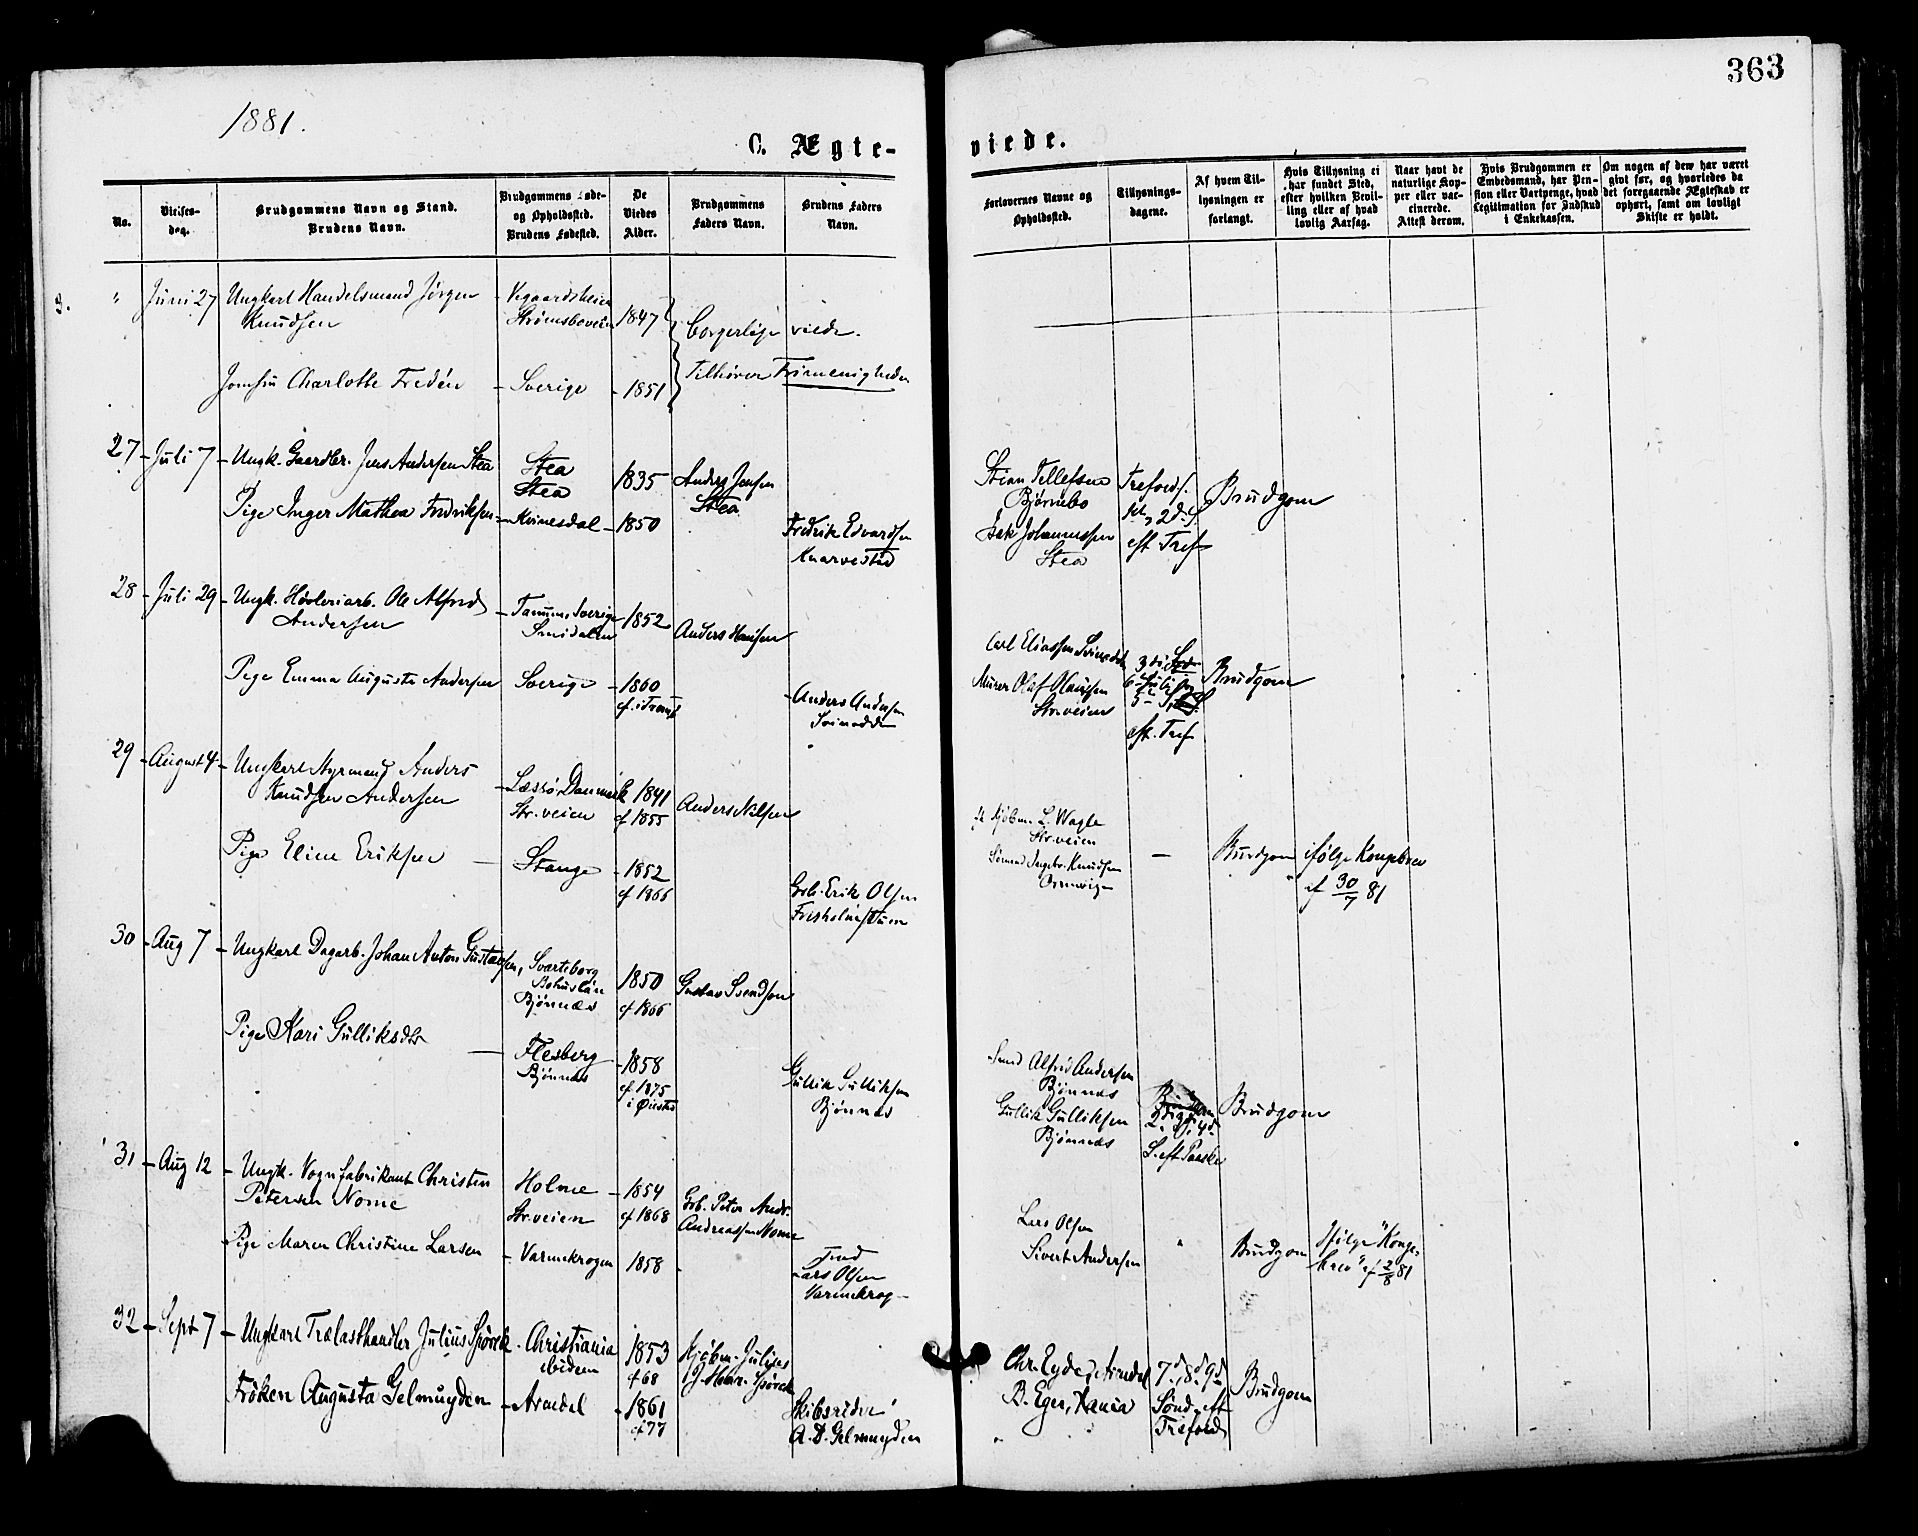 363
1881.
C. Ægte-
viede.
No.
Vielses-
dag.
Brudgommens Navn og Stand.
Brudens Navn.
Brudgommens Føde-
og Opholdssted.
Brudens Fødested.
De
Viedes
Alder.
Brudgommens
Faders Navn.
Brudens Faders
Navn.
Forlovernes Navne og
Opholdssted.
Tillysnings-
dagene.
Af hvem Til-
lysningen er
forlangt.
Hvis Tillysning ei
har fundet Sted,
efter hvilken Bevil-
ling eller af hvad
lovlig Aarsag.
Naar havt de
naturlige Kop-
per eller vac-
cinerede.
Attest derom.
Hvis Brudgommen er
Embedsmand, har Pen-
sion eller Vartpenge, hvad
Legitimation for Indskud
i Enkekassen.
Om nogen af dem har været
givt før, og hvorledes da
det foregaaende Ægteskab er
ophørt, samt om lovligt
Skifte er holdt.
" Juni 27 Ungkarl Handelsmand Jörgen
Knudsen
Vegaardsheien
Strömsboveien
1847
Borgerlige viede.
Jomfru Charlotte Fredén - Sverige - 1851
Tilhörer Frimenigheden
27 - Juli 7 - Ungk. Gaardbr. Jens Andersen Stea
Stea
Stea
1835
Anders Jensen
Stea
Pige Inger Mathea Fredriksen - Kvinesdal - 1850
Fredrik Edvardsen
Knarvestad
Stian Tellefsen
Björnebo
Johannessen
Stea
Trefords.
eft. Tref
Brudgom
28 - Juli 29 - Ungk. Hövleriarb. Ole Alfred
Andersen
Tanum, Sverige
Smidalen
1852
Anders Hansen
Pige Emma Augusta Andersen
Sverige - 1860
cf. i Tromö
Anders Andersen
Svinodden
Carl Eliassen Svinodden
Murer Olaf Olaussen
Str.veien
eft. Tref
Brudgom
29 - August 4 - Ungkarl Styrmand Anders
Knudsen Andersen
Læssö, Danmark
Str.veien
1841
cf 1855
Anders Nilsen
Pige Eline Eriksen - Stange - 1852
cf 1866
Grb. Erik Olsen
Kjöbm. L. Wagle
Str.veien
Sömand Ingebr. Knudsen
-
Brudgom
ifölge Kongebrev
af 30/7 81
30 - Aug 7 - Ungkarl Dagarb. Johan Anton Gustavsen,
Svarteborg
Bohuslän
Björnnæs
1850
cf 1866
Gustav Svendsen
Pige Kari Gulliksdtr - Flesberg
Björnnæs
1858
cf 1875
i Öiestad
Gullik Gulliksen
Björnnæs
Smed Alfred Andersen
Björnnæs
Gullik Gulliksen
Björnnæs
S. eft Paaske
Brudgom
31 - Aug 12 - Ungk. Vognfabrikant Christen
Petersen Nome
Holme
Str.veien
1854
cf 1868
Grb. Peter Andr.
Andreassen Nome
Pige Maren Christine Larsen - Varmekrogen 1858
Lars Olsen
Varmekrog
Lars Olsen
Sivert Andersen
"
Brudgom
Ifölge "Konge-
brev" af 2/8 81
32 - Sept 7 - Ungkarl Trælasthandler Julius Sjörck
Christiania
ibidem
1853
cf 68
Kjöbm. Julius
Sjörck
Fröken Augusta Gelmuyden - Arendal - 1861
cf 77
Skibsreder
A. D. Gelmuyden
Chr. Eyde, Arendal
B. Eger, Xania
7d, 8d, 9d
Sönd. eft
Trefold
Brudgom